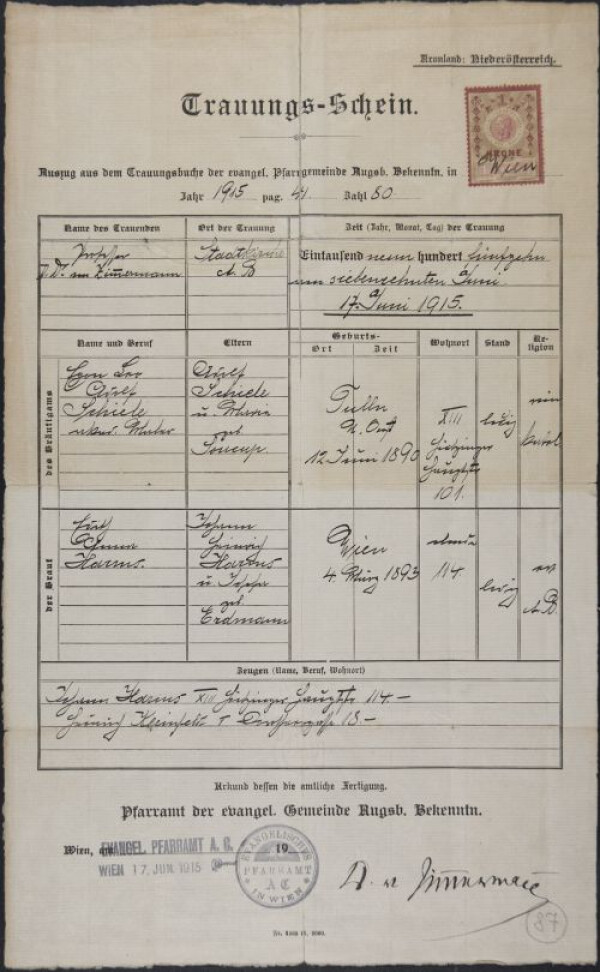 Kronland: Niederösterreich.
Trauungs-Schein.
1
KRONE
Auszug aus dem Trauungsbuche der evangel. Pfarrgemeinde Augsb. Bekenntn. in Wien
Jahr 1915 pag. 41 Zahl 80
Name des Trauenden
Ort der Trauung
Zeit (Jahr, Monat, Tag) der Trauung
Professor
Zimmermann
Stadtkirche
A. B
Eintausend neun hundert fünfzehn
am siebenzehnten Juni
17. Juni 1915.
Name und Beruf
Eltern
Geburts-
Ort Zeit
Wohnort
Stand
Religion
des Bräutigams
Egon Leo
Adolf
Schiele
akad. Maler
Adolf
Schiele
u. Marie
geb
Soucup.
Tulln
12 Juni 1890
XIII
Hietzinger
Hauptstr
101.
ledig
röm
kathol
der Braut
Edith
Anna
Harms.
Johann
Heinrich
Harms
u. Josefa
geb.
Erdmann
Wien
4. März 1893
ebenda
114.
ledig
ev
A.B.
Zeugen (Name, Beruf, Wohnort)
Johann Harms XIII Hietzinger Hauptstr 114.-
Heinrich 18.-
Urkund dessen die amtliche Fertigung.
Pfarramt der evangel. Gemeinde Augsb. Bekenntn.
Wien, am 19
EVANGEL. PFARRAMT A. C.
WIEN 17. JUN. 1915
EVANGELISCHES
PFARRAMT
A C
IN WIEN
D. v Zimmermann
87